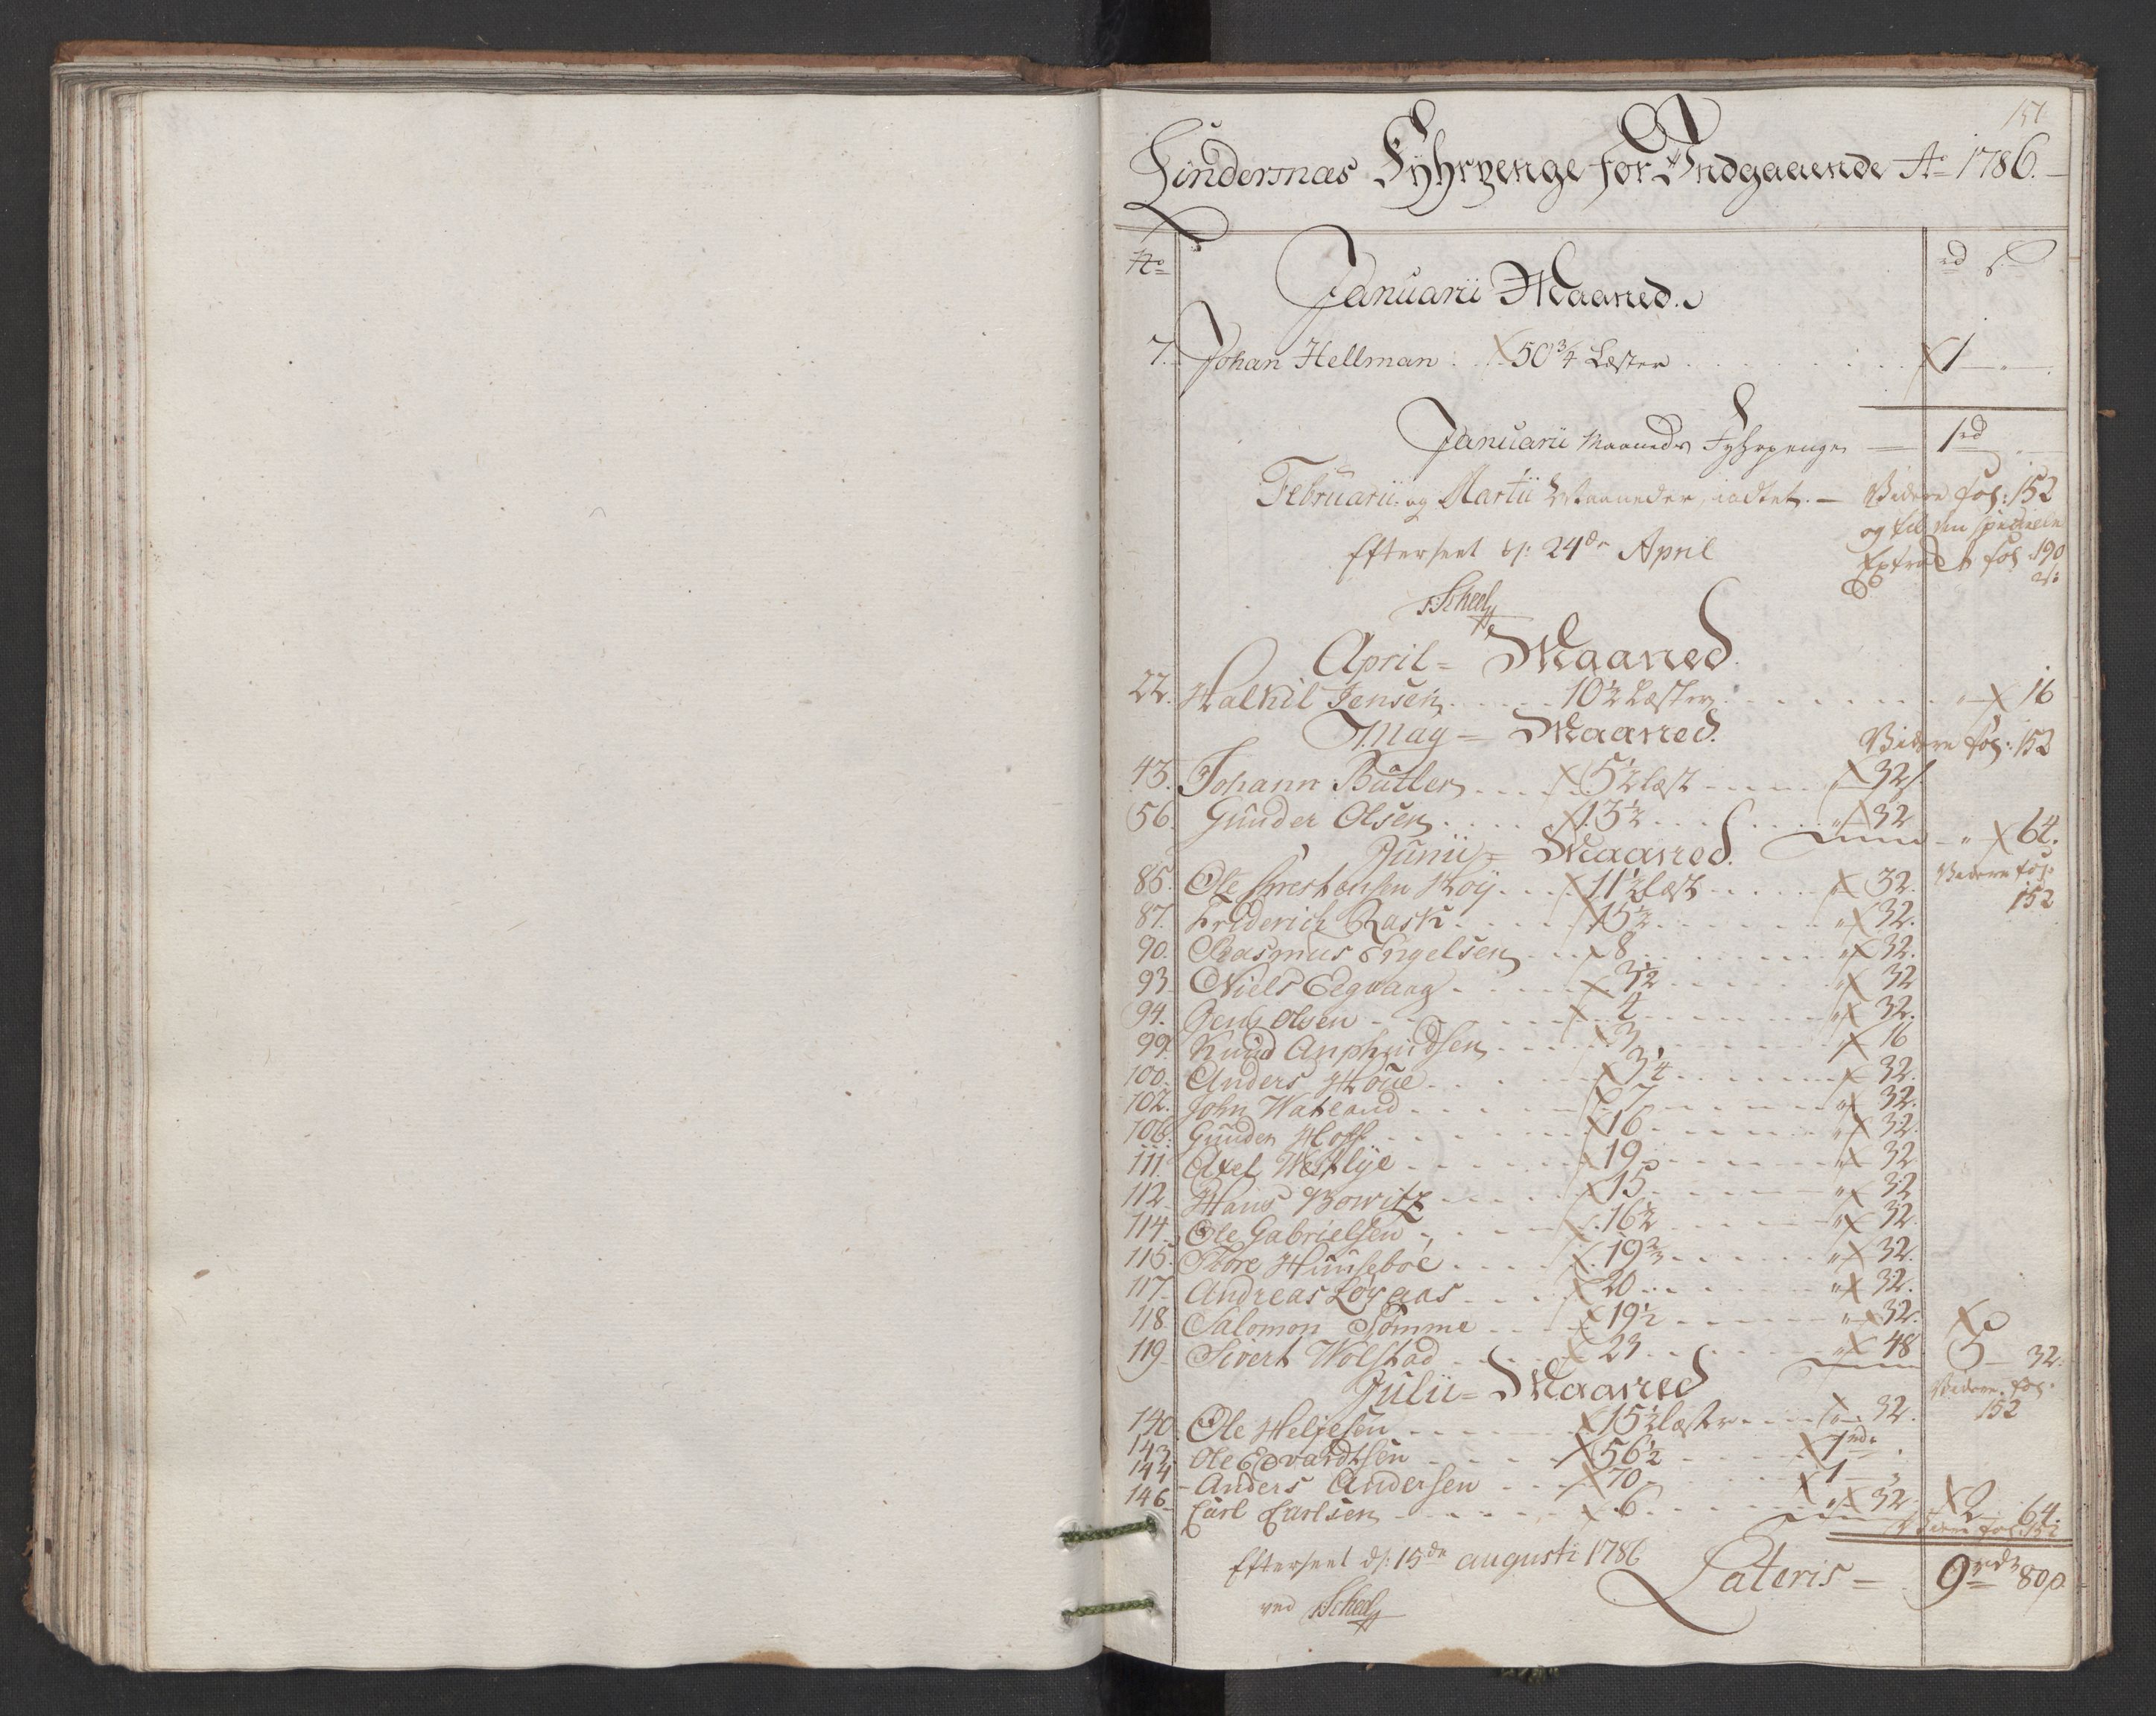 151
Lindersnæs Fyhrpenge for Indgaaende Ao 1786.
No rd s
Januarii Maaned.
7. Johan Hellman . . 50 3/4 Læster . . . 1 " —
Januarii Maaneds Fyhrpenge — 1 rd
Februarii og Martii Maaneder, indtet. — Videre fol: 152
og til den specielle
Extract fol 190
Efterseet d: 24de April
Scheel
April = Maaned.
22. Halkil Jensen . . . 10 1/2 Læster . . . " 16
May = Maaned. Videre fol: 152
43. Johann Butler . . . 5 1/2 læst . . . 32 s.
56. Gunder Olsen . . . 13 1/2 . . . " 32 — " 64.
Junii = Maaned.
85. Ole Chrestensen Høy . . . 11 1/2 læst . . . 32. Videre fol: 152
87. Friderich Rask . . . 15 1/2 . . . " 32.
90. Rasmus Engelsen . . . 8 . . . " 32.
93. Niels Eegvaag . . . 3 1/2 . . . " 32
94. Jens Olsen . . . 4 . . . " 32.
99. Knud Anphindsen . . . 3 . . . 16
100. Anders Houe . . . 3 1/4 . . . 32.
102. John Watland . . . 7 . . . " 32.
106. Gunder Hoff . . . 16 . . . " 32.
111. Axel Westlye . . . 19 . . . " 32
112. Hans Bowitz . . . 15 . . . " 32
114. Ole Gabrielsen . . . 16 1/2 . . . " 32.
115. Tore Huuseboe . . . 19 2/3 . . . " 32.
117. Andreas Løyaas . . . 20 . . . " 32.
118. Salomon Tomme . . . 19 1/2 . . . " 32.
119. Sivert Wolstad . . . 23 . . . " 48 5 — 32.
Julii = Maaned Videre fol. 152
140. Ole Heljesen . . . 15 1/2 læster . . . " 32.
143. Ole Edvardtsen . . . 56 1/2 . . . 1 rdr " .
144 Anders Andersen . . . 70 . . . 1 — "
146. Carl Carlsen . . . 6 . . . " 32 2 64.
Videre fol 152
Efterseet d: 15de augusti 1786 Lateris = 9 rdr 80 s
ved Scheel